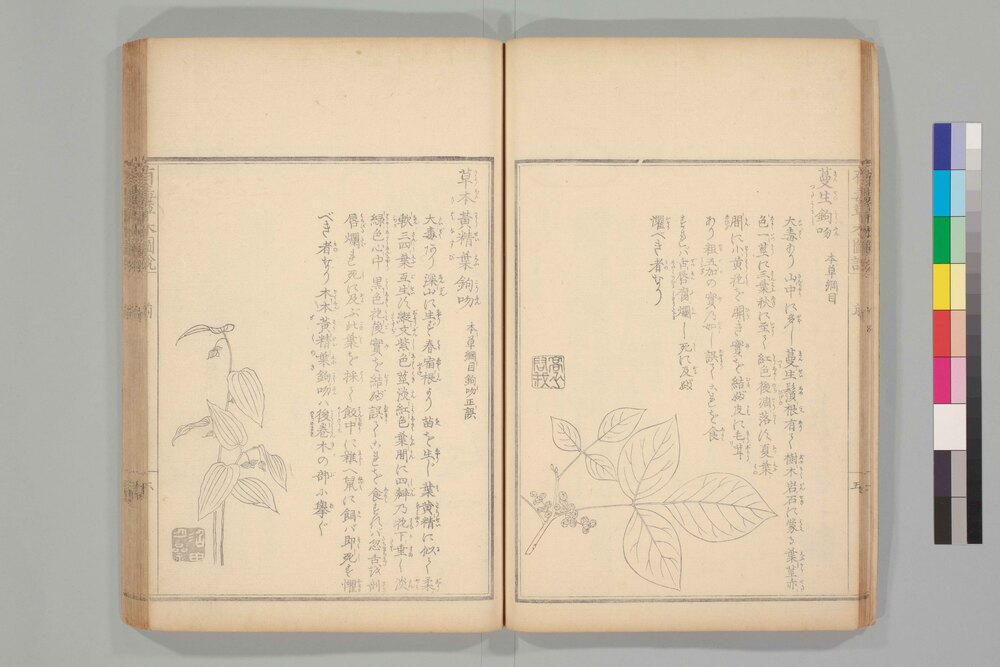 蔓生鉤吻 本草綱目
大毒あり山中に多し蔓生鬚根有て樹木岩石に蒙る葉莖赤
色一莖に三葉秋に至て紅色後凋落に夏葉
間に小黄花を開き實を結ぶ皮に毛茸
あり粗五加の實乃如し誤てこれを食
もれば舌唇齎爛し死に及ぶ
懼べき者なり
草本黄精葉鉤吻 本草綱目鉤吻正誤
大毒あり深山に生ず春宿根より苗を生じ葉黄精に似て柔
軟三四葉互生に縦文紫色莖淡紅色葉間に四瓣乃花下垂し淡
綠色心中黒色花後實を結ぶ誤てこれを食もれバ忽舌
唇爛れ死に及ぶ此葉を採て飯中に雜へ鼠に餌バ即死も懼
べき者なり木本黄精葉鉤吻ハ後巻木の部に擧ぐ
五